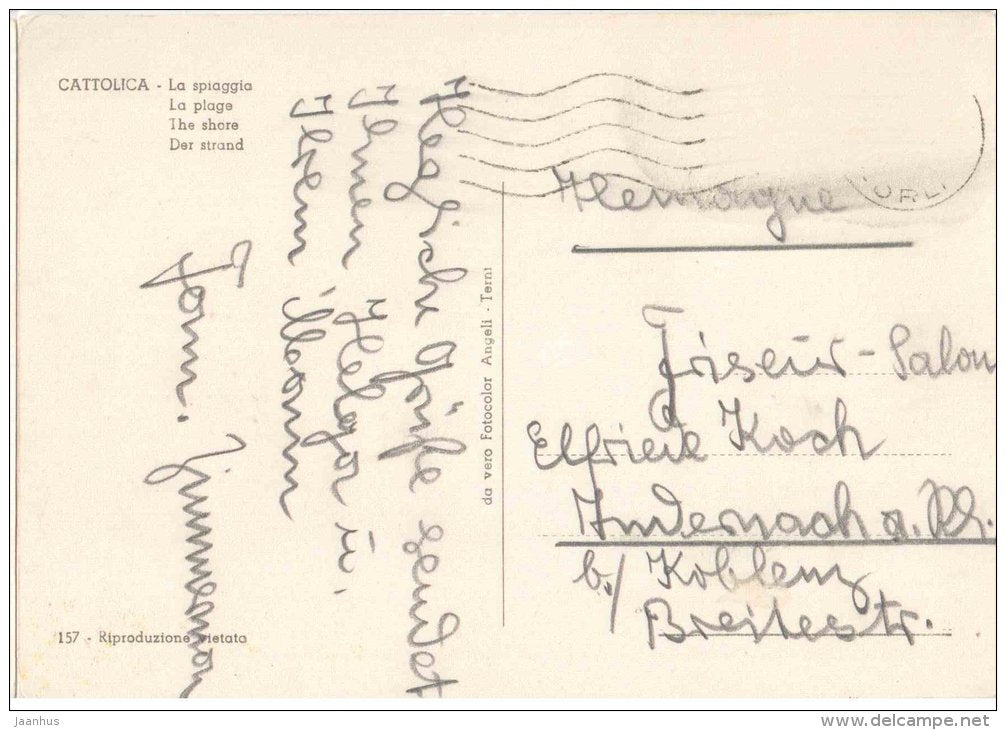 CATTOLICA - La spiaggia
La plage
The shore
Der strand
Herzliche Grüße sendet
Ihnen Helga u.
Ihrem Mann
Fam. Zimmermann
da vero Fotocolor Angeli - Terni
157 - Riproduzione vietata
Allemagne
Friseur-Salon
Elfriede Koch
Andernach a. Rh.
b./ Koblenz
Breitestr.
Jaanhus
www.delcampe.net